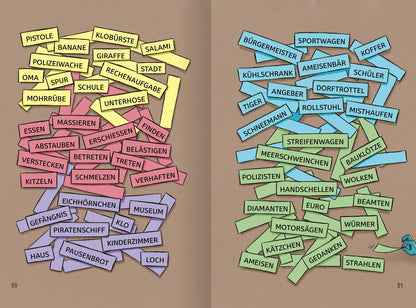 PISTOLE
KLOBÜRSTE
BANANE
SALAMI
GIRAFFE
POLIZEIWACHE
STADT
OMA
SPUR
RECHENAUFGABE
SCHULE
MOHRRÜBE
UNTERHOSE
ESSEN
MASSIEREN
FINDEN
ERSCHIESSEN
ABSTAUBEN
BELÄSTIGEN
VERSTECKEN
BETRETEN
TRETEN
KITZELN
SCHMELZEN
VERHAFTEN
EICHHÖRNCHEN
MUSEUM
GEFÄNGNIS
KLO
PIRATENSCHIFF
KINDERZIMMER
HAUS
PAUSENBROT
LOCH
50
BÜRGERMEISTER
SPORTWAGEN
KOFFER
AMEISENBÄR
KÜHLSCHRANK
SCHÜLER
ANGEBER
DORFTROTTEL
TIGER
ROLLSTUHL
MISTHAUFEN
SCHNEEMANN
STREIFENWAGEN
BAUKLÖTZE
MEERSCHWEINCHEN
POLIZISTEN
WOLKEN
HANDSCHELLEN
DIAMANTEN
EURO
BEAMTEN
MOTORSÄGEN
WÜRMER
KÄTZCHEN
AMEISEN
GEDANKEN
STRAHLEN
51